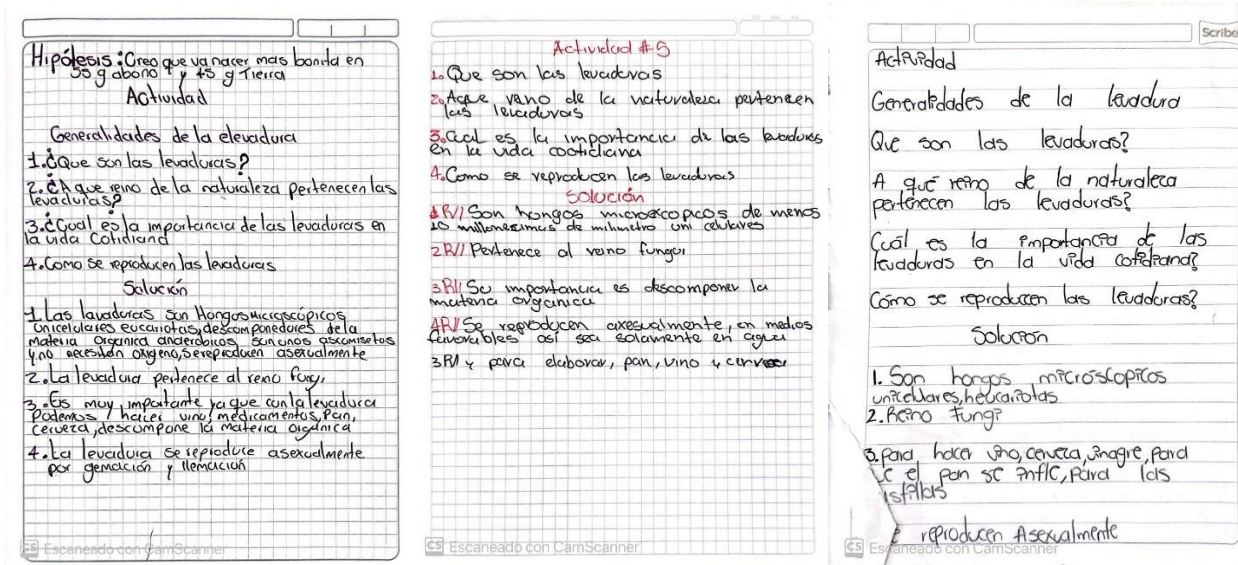 Hipótesis: Creo que va nacer mas bonita en
55 g abono y 45 g Tierra
Actividad
Generalidades de la elevadura
1. ¿Que son las levaduras?
2. ¿A que reino de la naturaleza pertenecen las
levaduras?
3. ¿Cual es la importancia de las levaduras en
la vida Cotidiana
4. Como se reproducen las levaduras
Solución
1. Las lavaduras son Hongos microscópicos,
unicelulares eucariotas, descomponedores de la
materia organica anaerobicos, son unos ascomisetos
y no necesitan oxigeno, se reproducen asexualmente
2. La levadura pertenece al reino fungi,
3. Es muy importante ya que con la levadura
Podemos hacer vino, medicamentos, Pan,
cerveza, descompone la materia organica
4. La levadura se reproduce asexualmente
por gemación y
CS Escaneado con CamScanner
Actividad #5
1. Que son las levaduras
2. Aque reino de la naturaleza pertenecen
las levaduras
3. Cual es la importancia de las levadures
en la vida cootidiana
4. Como se reproducen las levaduras
Solución
1R// Son hongos microscopicos de menos
10 millonesimas de milimetro uni celulares
2R// Pertenece al reino fungi
3R// Su importancia es descomponer la
materia organica
4R// Se reproducen axesualmente, en medios
favorables asi sea solamente en agua
3R// y para elaborar, pan, vino y
CS Escaneado con CamScanner
Scribe
Actividad
Generalidades de la levadura
Que son las levaduras?
A qué reino de la naturaleza
pertenecen las levaduras?
Cuál es la importancia de las
levaduras en la vida cotidiana?
Cómo se reproducen las levaduras?
Solucion
1. Son hongos microscopicos
unicelulares, heucariotas
2. Reino fungi
3. para hacer vino, cerveza, vinagre, para
el pan se infle, para las
reproducen Asexualmente
CS Escaneado con CamScanner